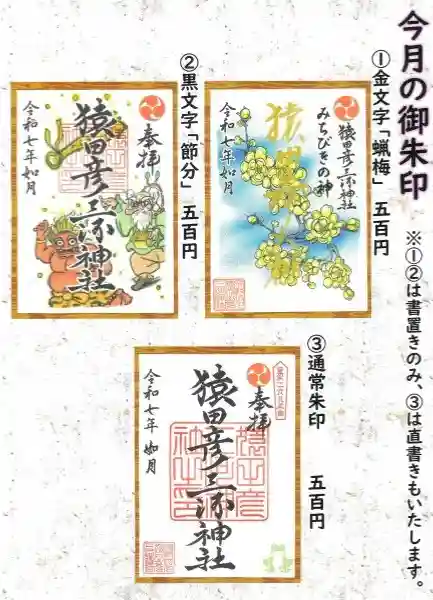 今月の御朱印
※①②は書置きのみ、③は直書きもいたします。
①金文字「蝋梅」 五百円
みちびきの神
猿田彦三河神社
令和七年如月
②黒文字「節分」 五百円
奉拝
猿田彦三河神社
令和七年如月
③通常朱印 五百円
奉拝
猿田彦三河神社
令和七年 如月